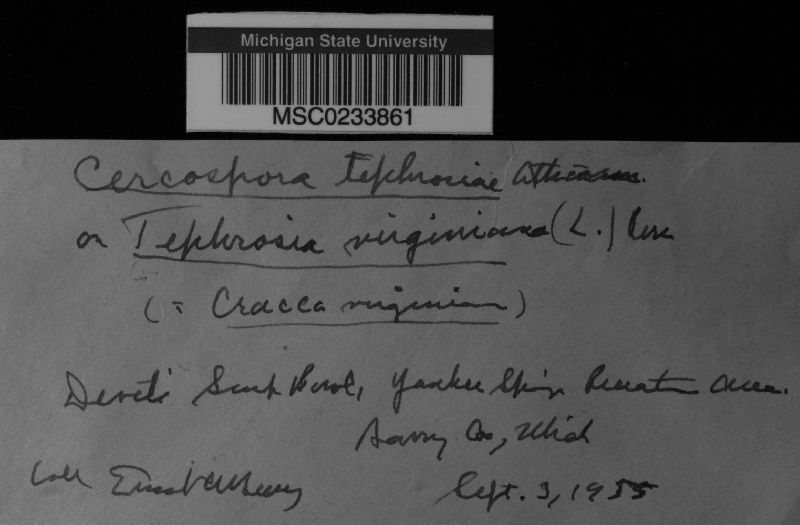 Michigan State University
MSC0233861
Cercospora tephrosiae Atkinson.
on Tephrosia virginiana (L.) Pers
(= Cracca virginiana)
Devil's Soup Bowl, Yankee Springs Recreation Area.
Barry Co., Mich
Coll Ernst Sept. 3, 1955